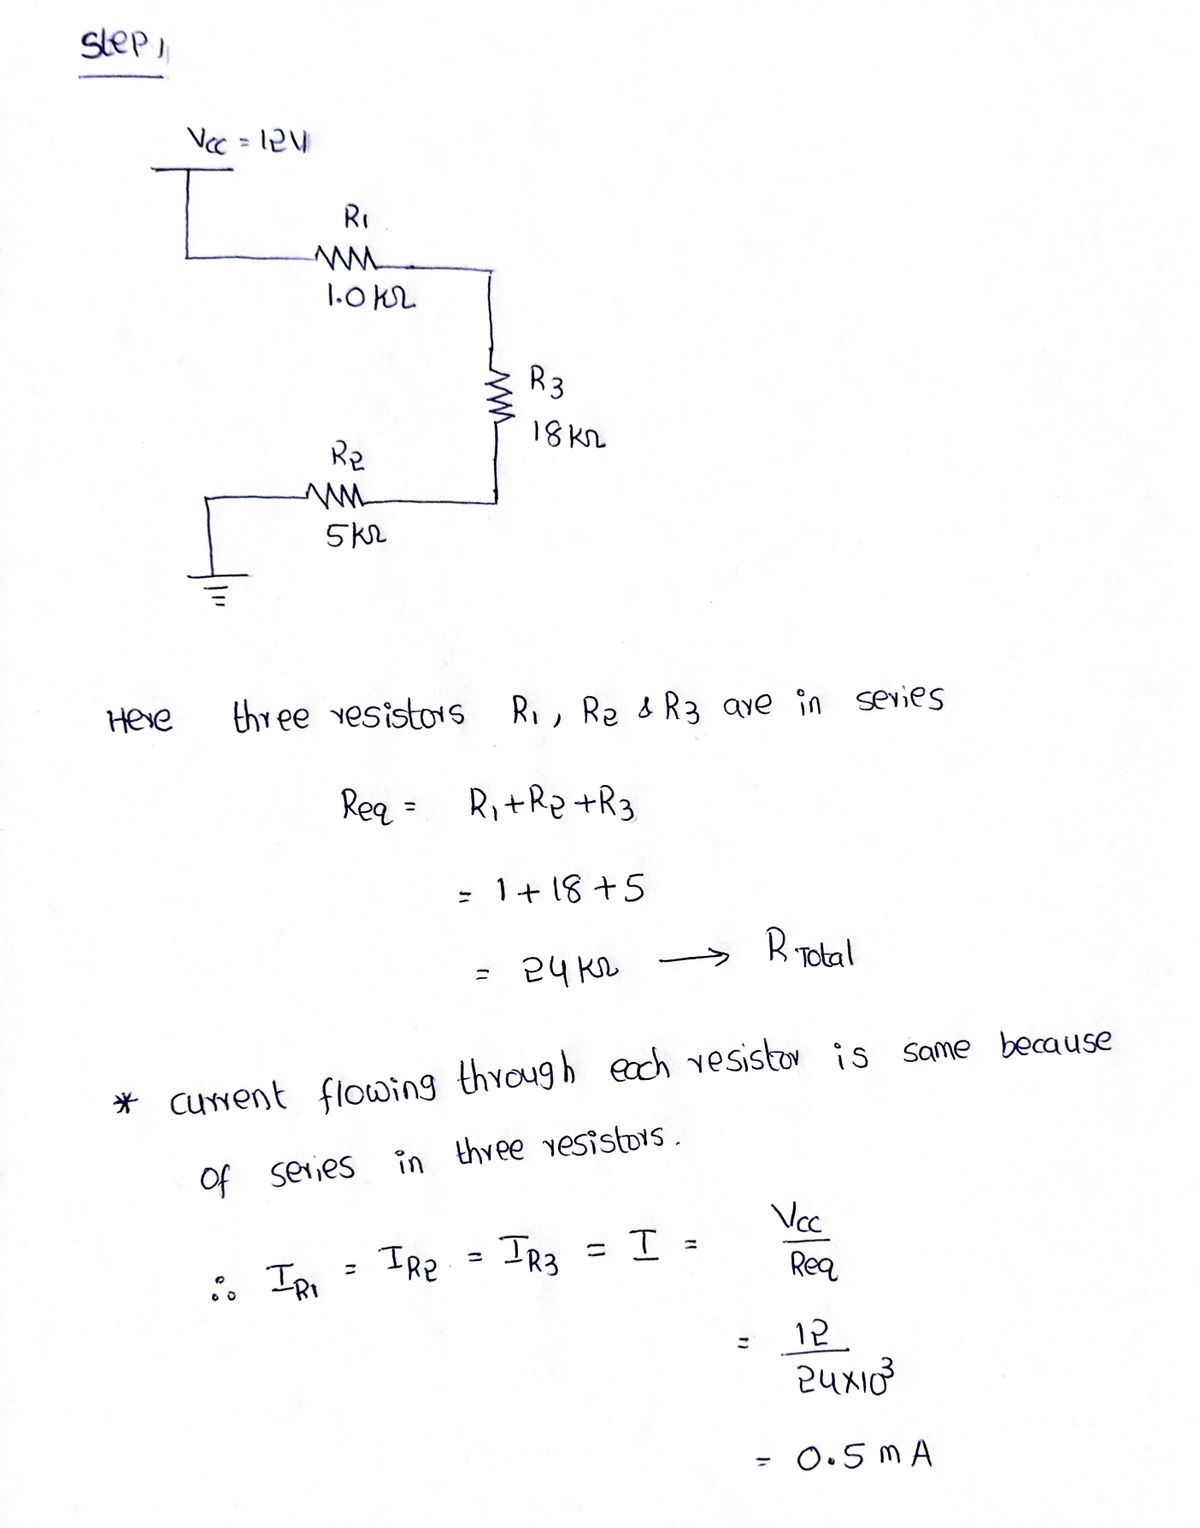 Step 1
Vcc = 12V
R1
1.0 kΩ
R3
18 kΩ
R2
5 kΩ
Here three resistors R1, R2 & R3 are in series
Req = R1+R2+R3
= 1+18+5
= 24 kΩ → R Total
* current flowing through each resistor is same because
of series in three resistors.
∴ IR1 = IR2 = IR3 = I = Vcc / Req
= 12 / 24×10³
= 0.5 mA